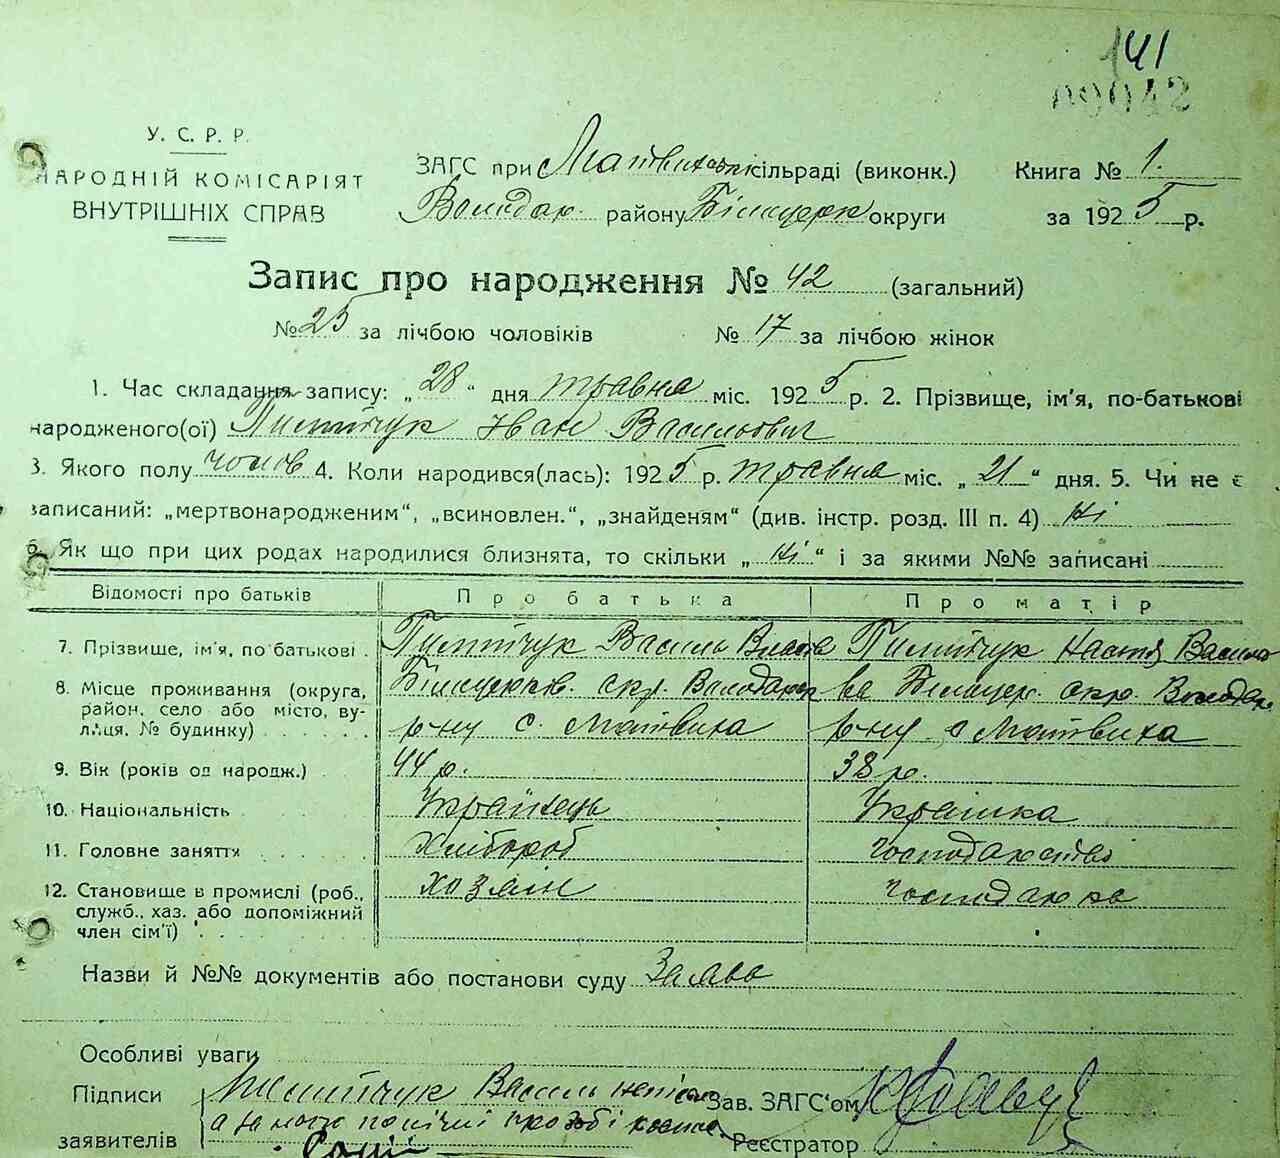 141
00042
У. С. Р. Р.
НАРОДНІЙ КОМІСАРІЯТ
ВНУТРІШНІХ СПРАВ
ЗАГС при Матвихської сільраді (виконк.)
Володар. району Білоцерк округи
Книга № 1.
за 1925 р.
Запис про народження № 42 (загальний)
№ 25 за лічбою чоловіків № 17 за лічбою жінок
1. Час складання запису: „28“ дня травня міс. 1925 р. 2. Прізвище, ім'я, по-батькові
народженого(ої) Пилипчук Іван Васильович
3. Якого полу чолов 4. Коли народився(лась): 1925 р. травня міс. „21“ дня. 5. Чи не є
записаний: „мертвонародженим“, „всиновлен.“, „знайденям“ (див. інстр. розд. III п. 4) ні
6. Як що при цих родах народилися близнята, то скільки „ні“ і за якими №№ записані
Відомості про батьків Про батька Про матір
7. Прізвище, ім'я, по батькові Пилипчук Василь Пилипчук Настя
8. Місце проживання (округа, район, село або місто, вулиця, № будинку) Білоцерків. окр. Володарс Білоцер. окр. Володар.
р-ну с. Матвиха р-ну с Матвиха
9. Вік (років од народж.) 44 р. 38 р.
10. Національність Українець Українка
11. Головне заняття Хлібороб Господарстві
12. Становище в промислі (роб., служб., хаз. або допоміжний член сім'ї) хозяін господарка
Назви й №№ документів або постанови суду Заява
Особливі уваги
Підписи
заявителів
Пилипчук Василь
Зав. ЗАГС'ом
Реєстратор